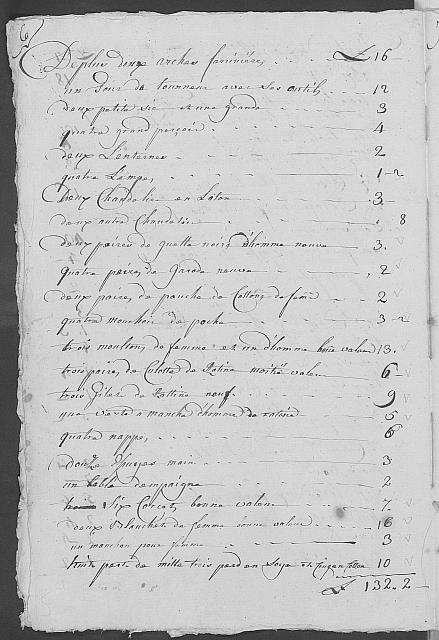 De plus deux arches farinière, £ 16
un Tour de tourneur avec Ses outils, 12
deux petite sie et une grande 3
quatre grand perçoir 4
deux Lenternes 2
quatre Lampe, 1-2
deux Chandelier en Laton 3
deux autre Chandelier 8
deux paires de guette noire d'homme neuve 3
quatre paires de neuve 2
deux paires de de Cotton de fem 2
quatre mouchoir de poche 3-2
trois de femme et un d'homme bone valeur 13
trois paires de Culotte de Ratine moitié valeur 6
trois Gilet de Rattine neuf 9
une Veste a manche d'homme de ratine 5
quatre nappe, 6
douze Essuyes main 3
un table de 2
Six bonne valeur 7
deux Blanchet de femme bonne valeur 16
un manchon pour femme 3
en Soye et 10
£ 132.2